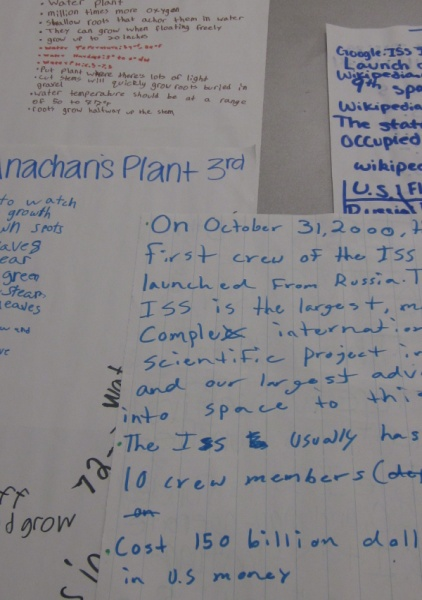 • Water plant
• million times more oxygen
• Shallow roots that achor them in water
• They can grow when floating freely
• grow up to 20 inches
• Put plant where there's lots of light
• Cut stems will quickly grow roots buried in
gravel
• water temperature should be at a range
• roots grow halfway up the stem
Google: ISS I
Launch
Wikipedia
9th spa
Wikipedia
The stat
occupied
wikiped
U.S. Fl
Russia
nachan's Plant 3rd
to watch
growth
wn spots
eaves
ear
green
steam
leaves
w and
ff
d grow
72
• On October 31, 2000, th
first crew of the ISS
launched from Russia. T
ISS is the largest, m
Complex internation
scientific project in
and our largest adv
into space to thi
• The ISS usually has
10 crew members (
on
• Cost 150 billion doll
in U.S money